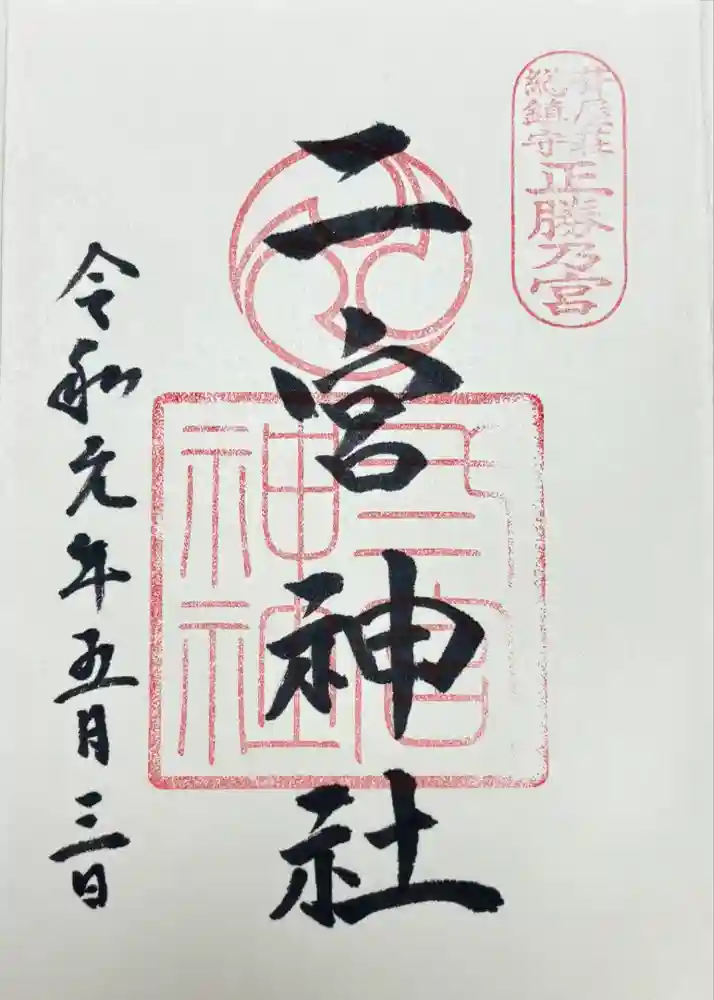 葺屋荘
総鎮守
正勝乃宮
二宮神社
二宮
神社
令和元年五月三日